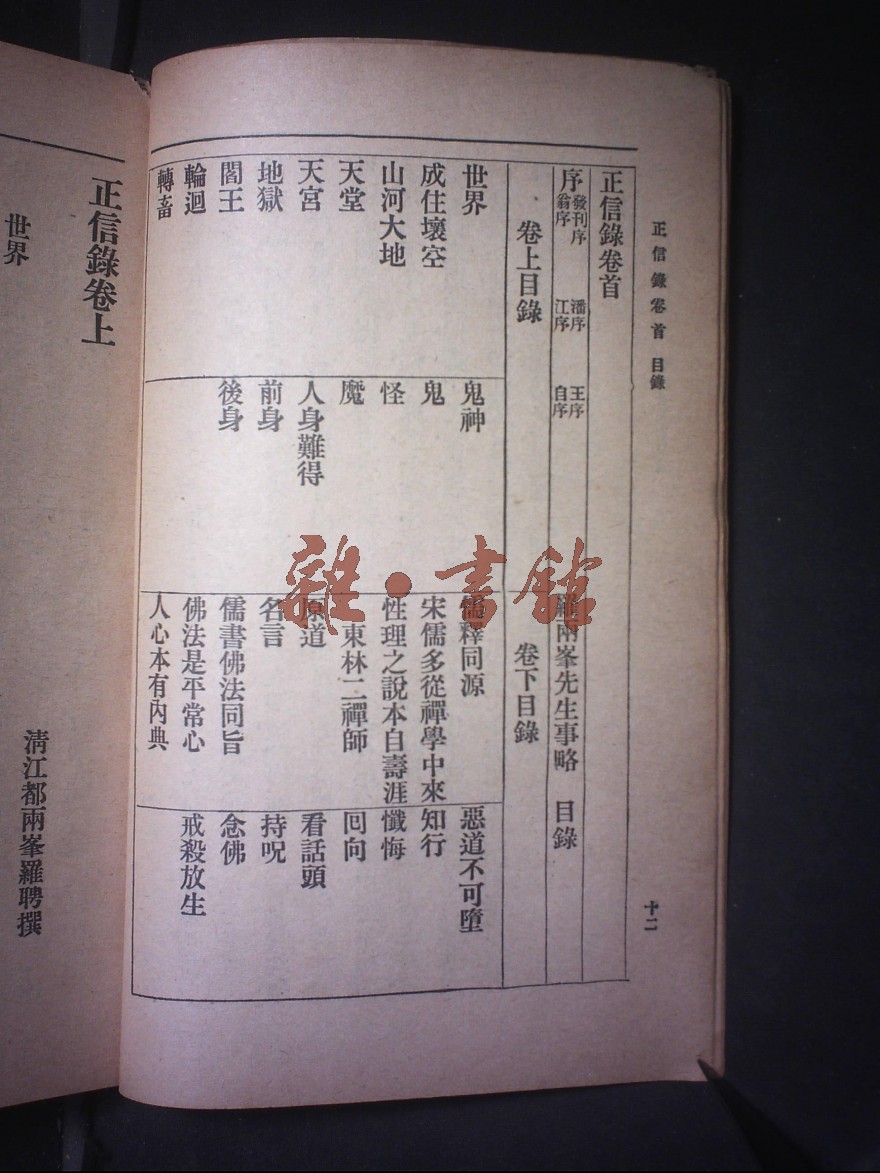 正信錄卷首 目錄
十二
正信錄卷首
序 發刊序 潘序 王序
翁序 江序 自序
羅兩峯先生事略 目錄
卷上目錄
世界
成住壞空
山河大地
天堂
天宮
地獄
閻王
輪迴
轉畜
鬼神
鬼
怪
魔
人身難得
前身
後身
卷下目錄
儒釋同源
宋儒多從禪學中來
性理之說本自壽涯
東林二禪師
原道
名言
儒書佛法同旨
佛法是平常心
人心本有內典
惡道不可墮
知行
懺悔
回向
看話頭
持呪
念佛
戒殺放生
正信錄卷上
清江都兩峯羅聘撰
世界
雜·書館